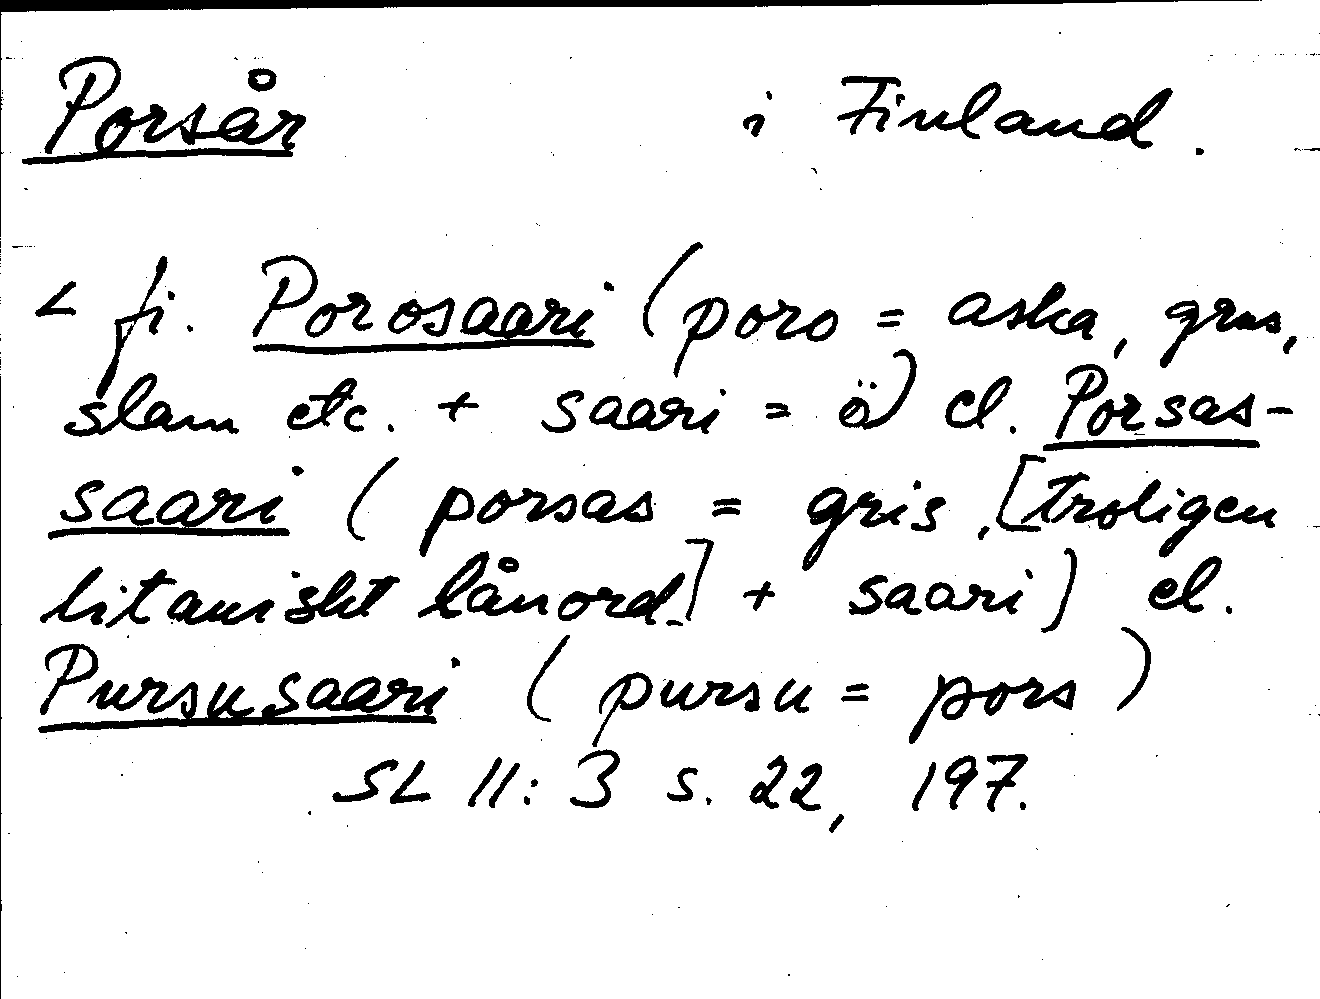 Porsår i Finland.
< fi. Porosaari (poro = aska, grus,
slam etc. + saari = ö) el. Porsas-
saari (porsas = gris, [troligen
litauiskt lånord] + saari) el.
Pursusaari (pursu = pors)
SL 11:3 s. 22, 197.